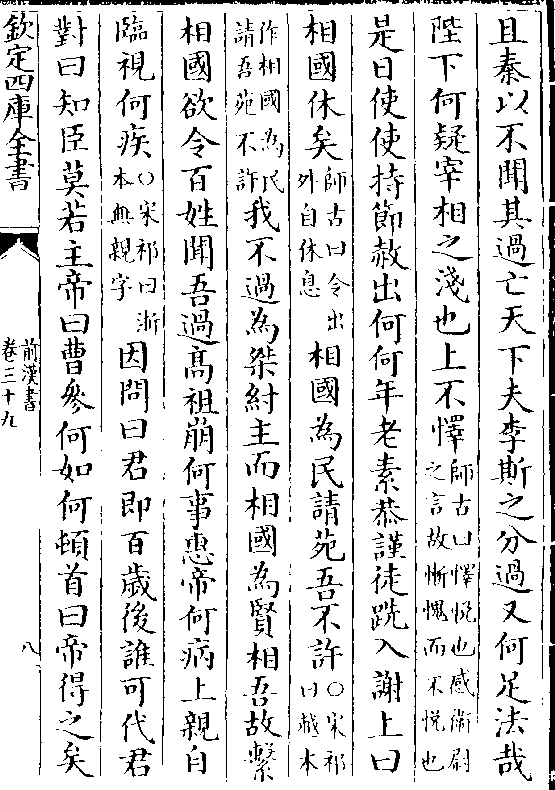 且秦以不聞其過亡天下夫李斯之分過又何足法哉
陛下何疑宰相之淺也上不懌師古曰懌悦也感衛尉之言故慚愧而不悦也
是日使使持節赦出何何年老素恭謹徒跣入謝上曰
相國休矣師古曰令出外自休息相國為民請苑吾不許○宋祁曰越本
作相國為民請吾苑不許我不過為桀紂主而相國為賢相吾故繫
相國欲令百姓聞吾過高祖崩何事惠帝何病上親自
臨視何疾○宋祁曰浙本無親字因問曰君即百歲後誰可代君
對曰知臣莫若主帝曰曹參何如何頓首曰帝得之矣
欽定四庫全書
前漢書
卷三十九
八